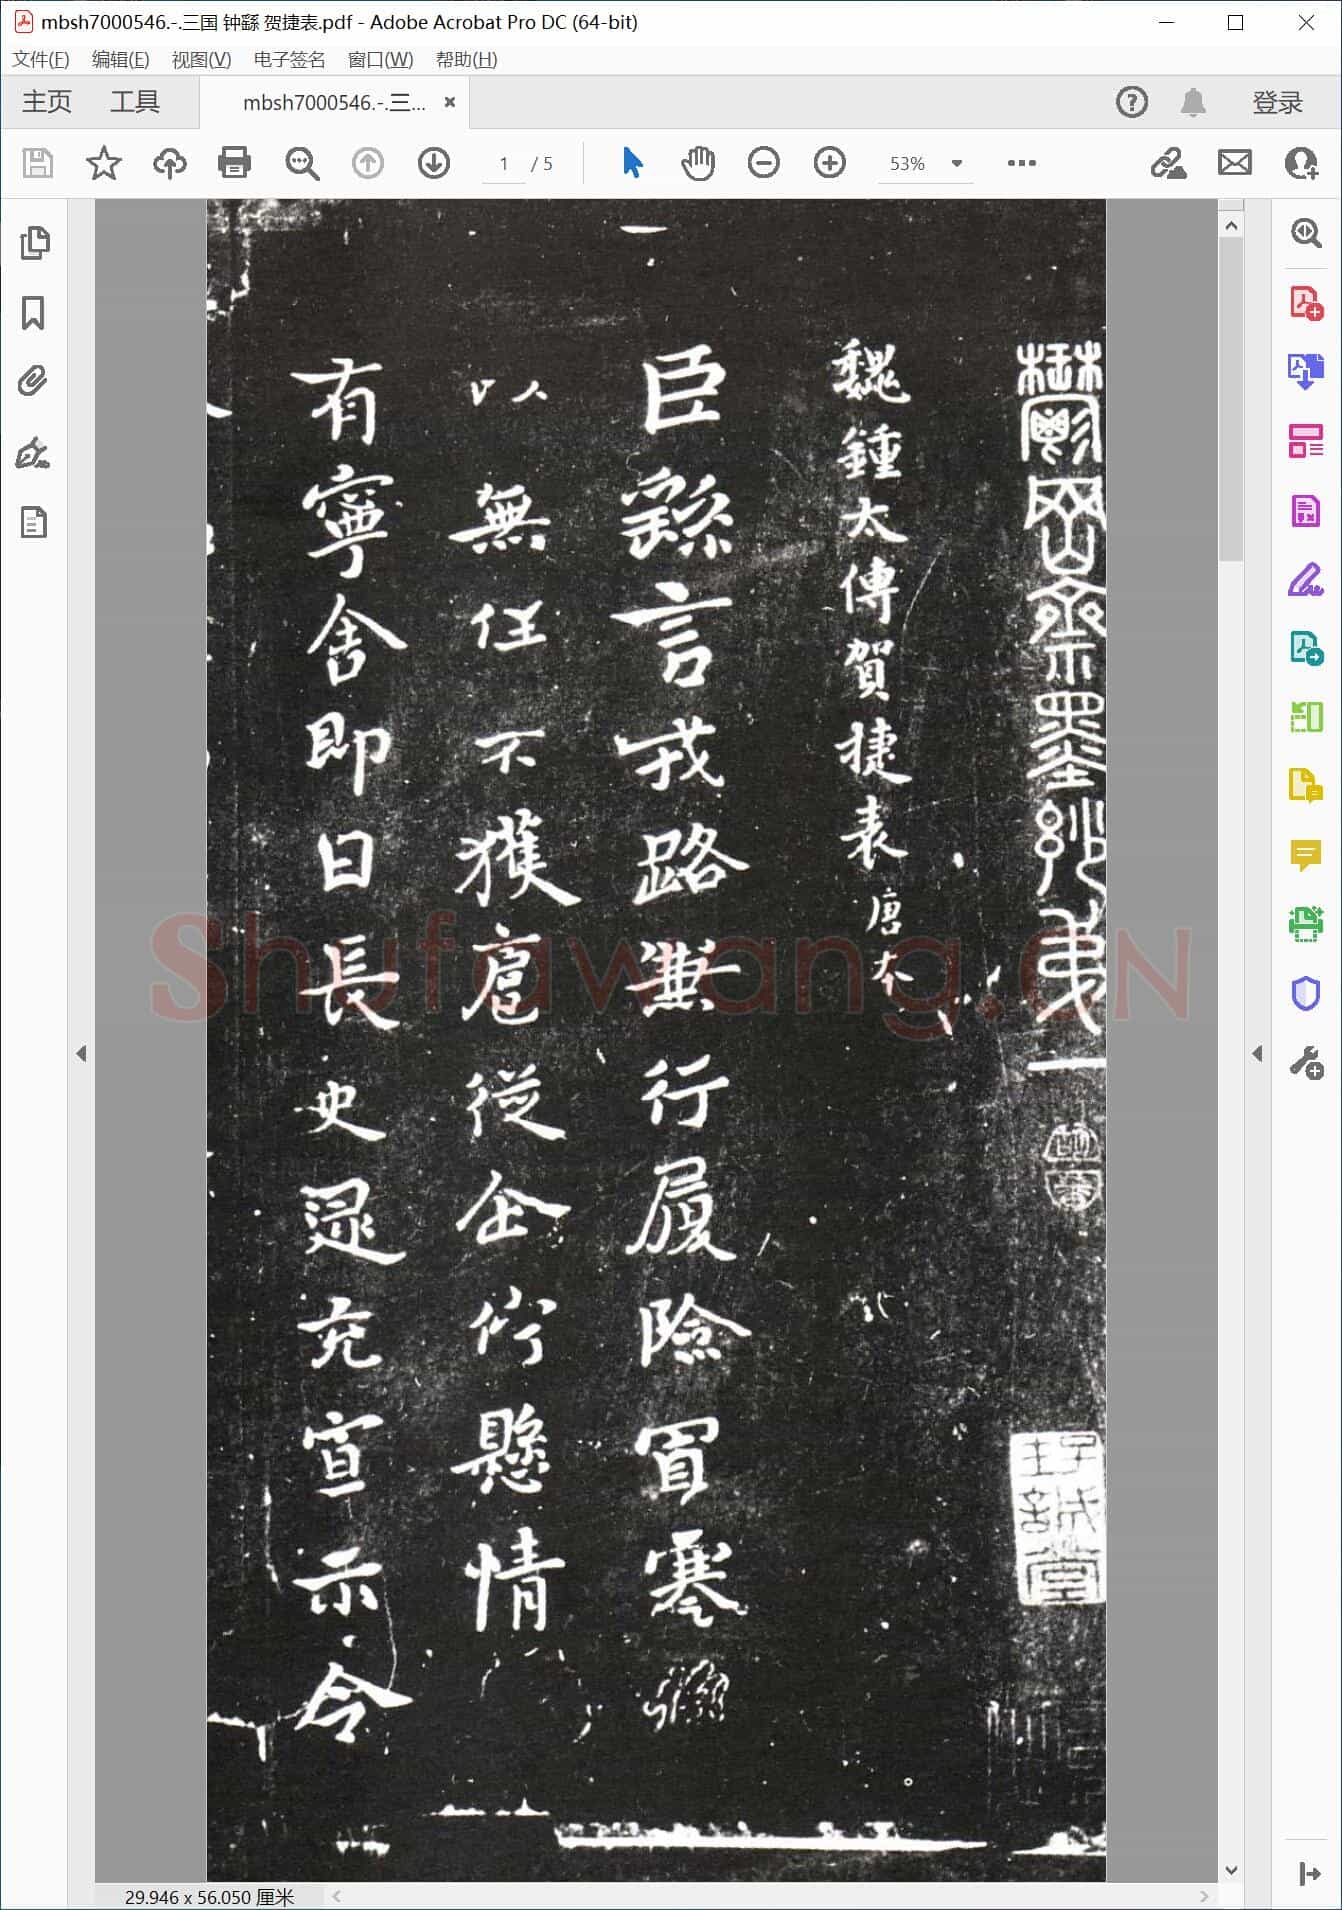 mbsh7000546.-.三国 钟繇 贺捷表.pdf - Adobe Acrobat Pro DC (64-bit)
文件(F) 编辑(E) 视图(V) 电子签名 窗口(W) 帮助(H)
主页 工具 mbsh7000546.-.三... × 登录
1 / 5 53%
鬱岡齋墨妙弟一
魏鍾太傅賀捷表 唐本
臣繇言戎路兼行履險冒寒
以無任不獲扈從企佇懸情
有寧舍即日長史逯充宣示令
Shufawang.CN
29.946 x 56.050 厘米